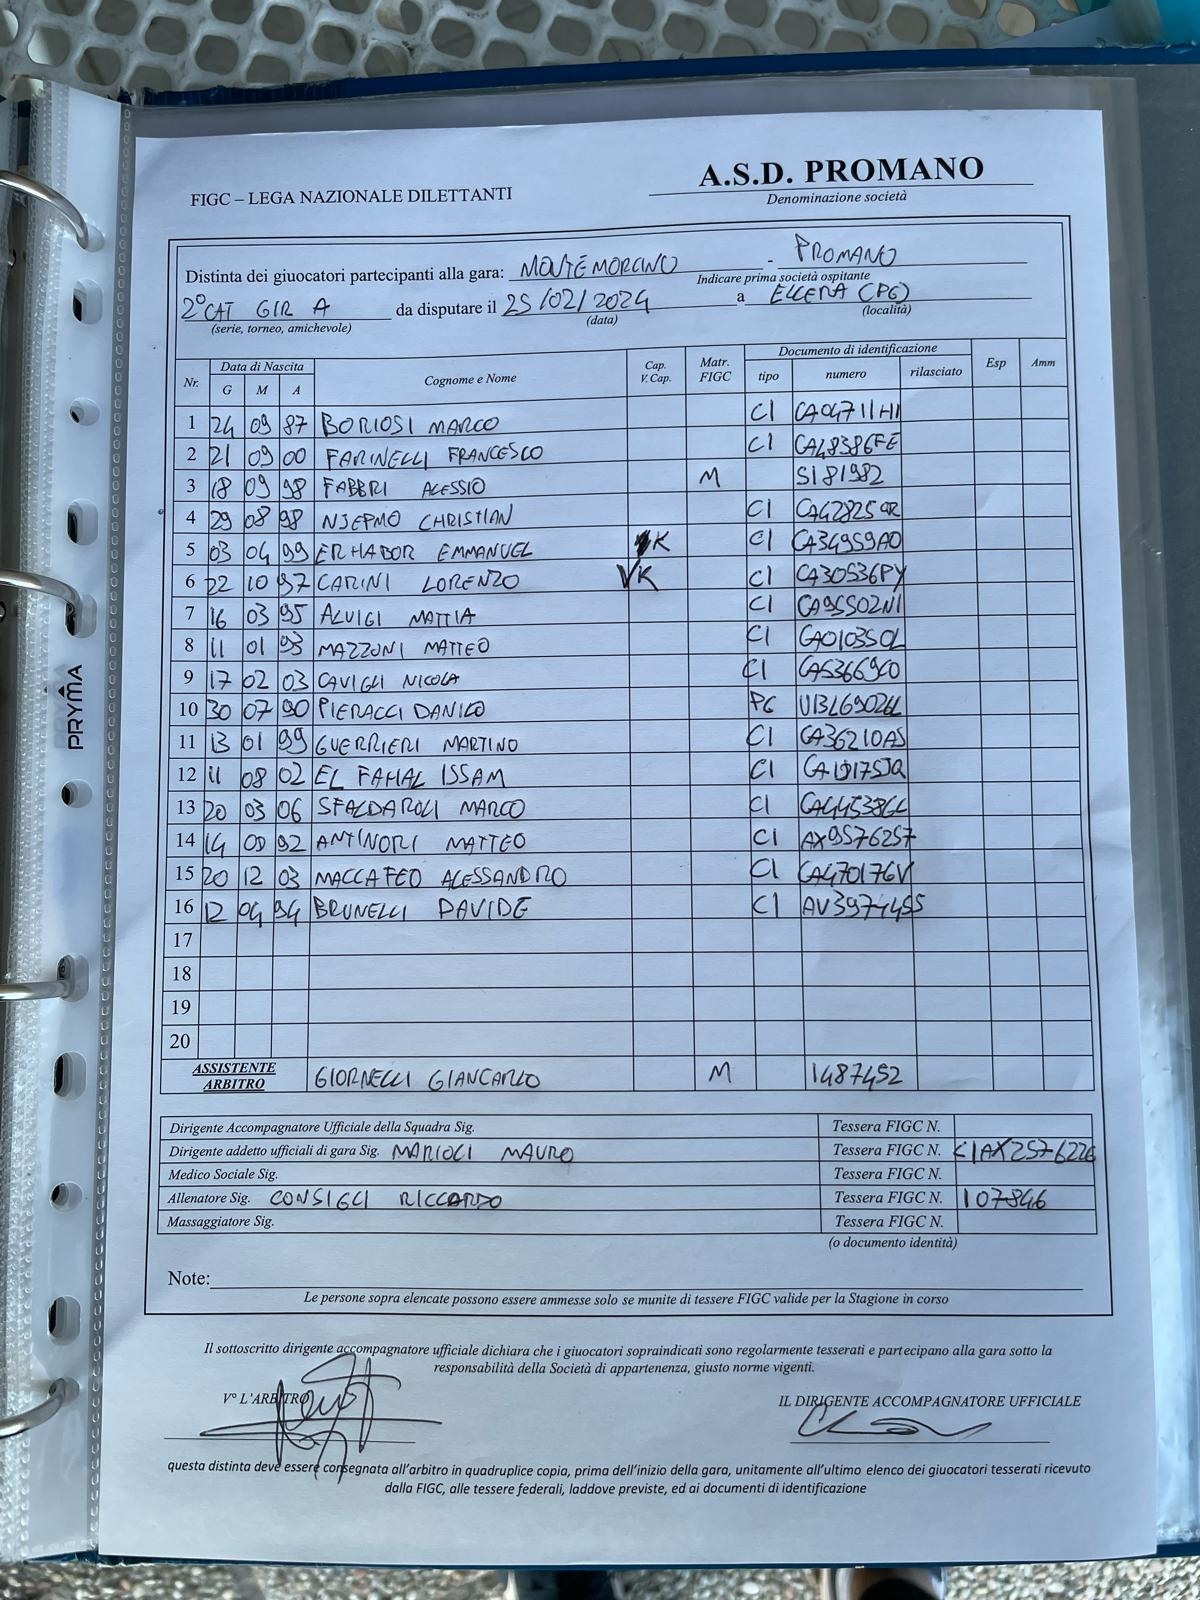 A.S.D. PROMANO
FIGC – LEGA NAZIONALE DILETTANTI
Denominazione società
Distinta dei giuocatori partecipanti alla gara: MONTEMORCINO - PROMANO
Indicare prima società ospitante
2° CAT GIR A da disputare il 25/02/2024 a ELLERA (PG)
(serie, torneo, amichevole) (data) (località)
Nr. Data di Nascita Cognome e Nome Cap. V. Cap. Matr. FIGC Documento di identificazione Esp Amm
G M A tipo numero rilasciato
1 24 09 87 BORIOSI MARCO CI CA04711HI
2 21 09 00 FARINELLI FRANCESCO CI CA48386FE
3 18 09 98 FABBRI ALESSIO M 5181982
4 29 08 98 NJEPMO CHRISTIAN CI CA42825QR
5 03 04 99 ERHABOR EMMANUEL K CI CA34959AO
6 22 10 97 CARINI LORENZO VK CI CA30536PY
7 16 03 95 ALUIGI MATTIA CI CA95502NI
8 11 01 93 MAZZONI MATTEO CI CA01035OL
9 17 02 03 CAVIGLI NICOLA CI CA53669CO
10 30 07 90 PIERACCI DANILO PG
11 13 01 99 GUERRIERI MARTINO CI CA36210AS
12 11 08 02 EL FAHAL ISSAM CI
13 20 03 06 SFALDAROLI MARCO CI CA44538GL
14 14 00 92 ANTINORI MATTEO CI AX9576257
15 20 12 03 MACCAFEO ALESSANDRO CI CA47017GV
16 12 04 94 BRUNELLI DAVIDE CI AV3974455
17
18
19
20
ASSISTENTE ARBITRO GIORNELLI GIANCARLO M 1487452
Dirigente Accompagnatore Ufficiale della Squadra Sig. Tessera FIGC N.
Dirigente addetto ufficiali di gara Sig. MARIOLI MAURO Tessera FIGC N. CIAX2576226
Medico Sociale Sig. Tessera FIGC N.
Allenatore Sig. CONSIGLI RICCARDO Tessera FIGC N. 107846
Massaggiatore Sig. Tessera FIGC N.
(o documento identità)
Note:
Le persone sopra elencate possono essere ammesse solo se munite di tessere FIGC valide per la Stagione in corso
Il sottoscritto dirigente accompagnatore ufficiale dichiara che i giuocatori sopraindicati sono regolarmente tesserati e partecipano alla gara sotto la
responsabilità della Società di appartenenza, giusto norme vigenti.
V° L'ARBITRO IL DIRIGENTE ACCOMPAGNATORE UFFICIALE
questa distinta deve essere consegnata all'arbitro in quadruplice copia, prima dell'inizio della gara, unitamente all'ultimo elenco dei giuocatori tesserati ricevuto
dalla FIGC, alle tessere federali, laddove previste, ed ai documenti di identificazione
PRYMA